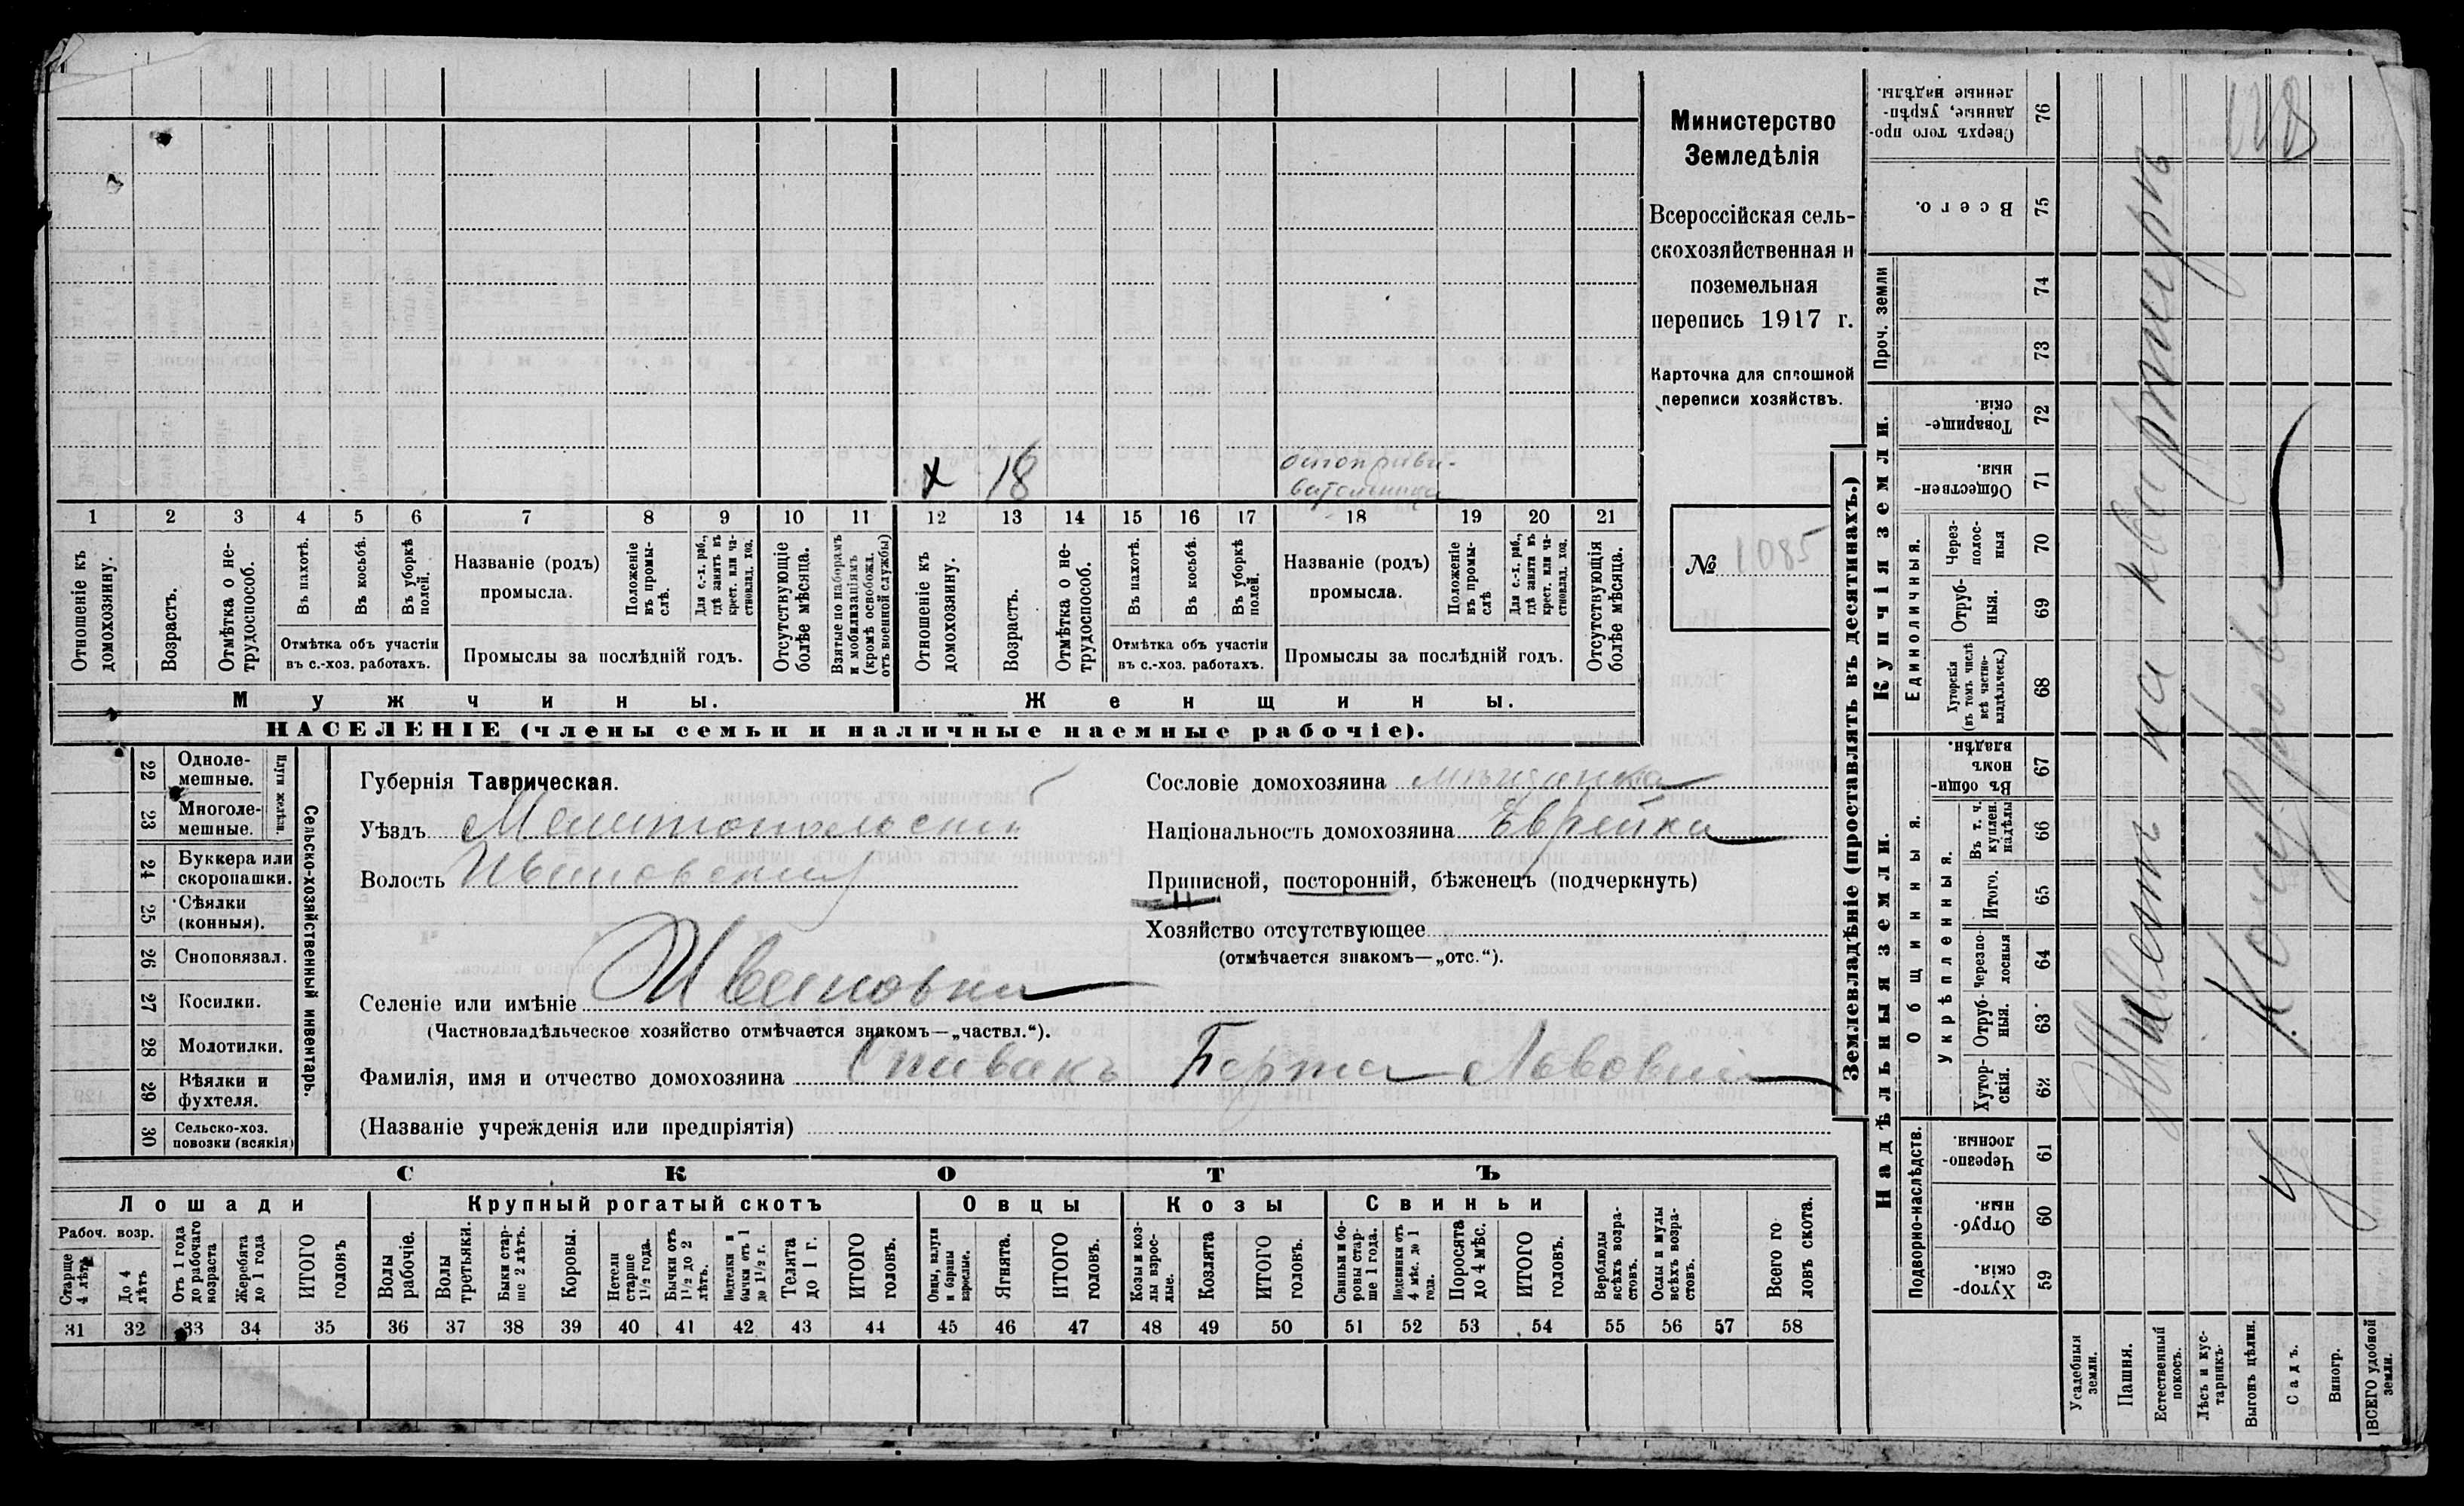 Министерство
Земледѣлія
Всероссійская сель-
скохозяйственная и
поземельная
перепись 1917 г.
Карточка для сплошной
переписи хозяйствъ.
№ 1085
х 18 оспоприви-
вательница
1 2 3 4 5 6 7 8 9 10 11 12 13 14 15 16 17 18 19 20 21
Отношеніе къ домохозяину.
Возрастъ.
Отмѣтка о не-трудоспособ.
Въ пахотѣ.
Въ косьбѣ.
Въ уборкѣ полей.
Отмѣтка объ участіи
въ с.-хоз. работахъ.
Названіе (родъ)
промысла.
Положеніе въ промы-слѣ.
Для с.-х. раб., гдѣ занятъ въ крест. или ча-стновлад. хоз.
Промыслы за послѣдній годъ.
Отсутствующіе болѣе мѣсяца.
Взятые по наборамъ и мобилизаціямъ (кромѣ освобожд. отъ военной службы)
Отношеніе къ домохозяину.
Возрастъ.
Отмѣтка о не-трудоспособ.
Въ пахотѣ.
Въ косьбѣ.
Въ уборкѣ полей.
Отмѣтка объ участіи
въ с.-хоз. работахъ.
Названіе (родъ)
промысла.
Положеніе въ промы-слѣ
Для с.-х. раб., гдѣ занята въ крест. или ча-стновлад. хоз.
Промыслы за послѣдній годъ.
Отсутствующія болѣе мѣсяца.
Мужчины.
Женщины.
НАСЕЛЕНІЕ (члены семьи и наличные наемные рабочіе).
Сельско-хозяйственный инвентарь.
Плуги желѣзн.
22 Одноле-мешные.
23 Многоле-мешные.
24 Буккера или скоропашки.
25 Сѣялки (конныя).
26 Сноповязал.
27 Косилки.
28 Молотилки.
29 Вѣялки и фухтеля.
30 Сельско-хоз. повозки (всякія)
Губернія Таврическая.
Уѣздъ Мелитопольскій
Волость Ивановская
Селеніе или имѣніе Ивановка
(Частновладѣльческое хозяйство отмѣчается знакомъ—„частвл.“).
Сословіе домохозяина мѣщанка
Національность домохозяина Еврейка
Приписной, посторонній, бѣженецъ (подчеркнуть)
Хозяйство отсутствующее
(отмѣчается знакомъ—„отс.“).
Фамилія, имя и отчество домохозяина Спивакъ Берта Львовна
(Названіе учрежденія или предпріятія)
СКОТЪ
Лошади
Крупный рогатый скотъ
Овцы
Козы
Свиньи
Рабоч. возр.
Старше 4 лѣтъ
До 4 лѣтъ
Отъ 1 года до рабочаго возраста
Жеребята до 1 года
ИТОГО головъ
Волы рабочіе.
Волы третьяки.
Быки стар-ше 2 лѣтъ.
Коровы.
Нетели старше 1½ года.
Бычки отъ 1½ до 2 лѣтъ.
Подтелки и бычки отъ 1 до 1½ г.
Телята до 1 г.
ИТОГО головъ.
Овцы, валухи и бараны взрослые.
Ягнята.
ИТОГО головъ.
Козы и коз-лы взрос-лые.
Козлята
ИТОГО головъ.
Свиньи и бо-ровы стар-ше 1 года.
Подсвинки отъ 4 мѣс. до 1 года.
Поросята до 4 мѣс.
ИТОГО головъ.
Верблюды всѣхъ возра-стовъ.
Ослы и мулы всѣхъ возра-стовъ.
Всего го-ловъ скота.
31 32 33 34 35 36 37 38 39 40 41 42 43 44 45 46 47 48 49 50 51 52 53 54 55 56 57 58
Землевладѣніе (проставлять въ десятинахъ.)
Надѣльныя земли.
Купчія земли.
Проч. земли
Подворно-наслѣдств.
Общинныя.
Укрѣпленныя.
Единоличныя.
Хутор-скія. 59
Отруб-ныя. 60
Черезпо-лосныя. 61
Хутор-скія. 62
Отруб-ныя. 63
Черезпо-лосныя 64
Итого. 65
Въ т. ч. куплен. надѣлы 66
Въ общин-номъ владѣн. 67
Хуторскія (въ томъ числѣ всѣ частно-владѣльческ.) 68
Отруб-ныя. 69
Через-полос-ныя 70
Обществен-ныя. 71
Товарище-скія. 72
73
74
Всего. 75
Сверхъ того про-данные, укрѣп-ленные надѣлы. 76
Усадебныя земли.
Пашня.
Естественный покосъ.
Лѣсъ и кус-тарникъ.
Выгонъ цѣлин.
Садъ.
Виногр.
ВСЕГО удобной земли.
128
Живетъ на квартирѣ
у